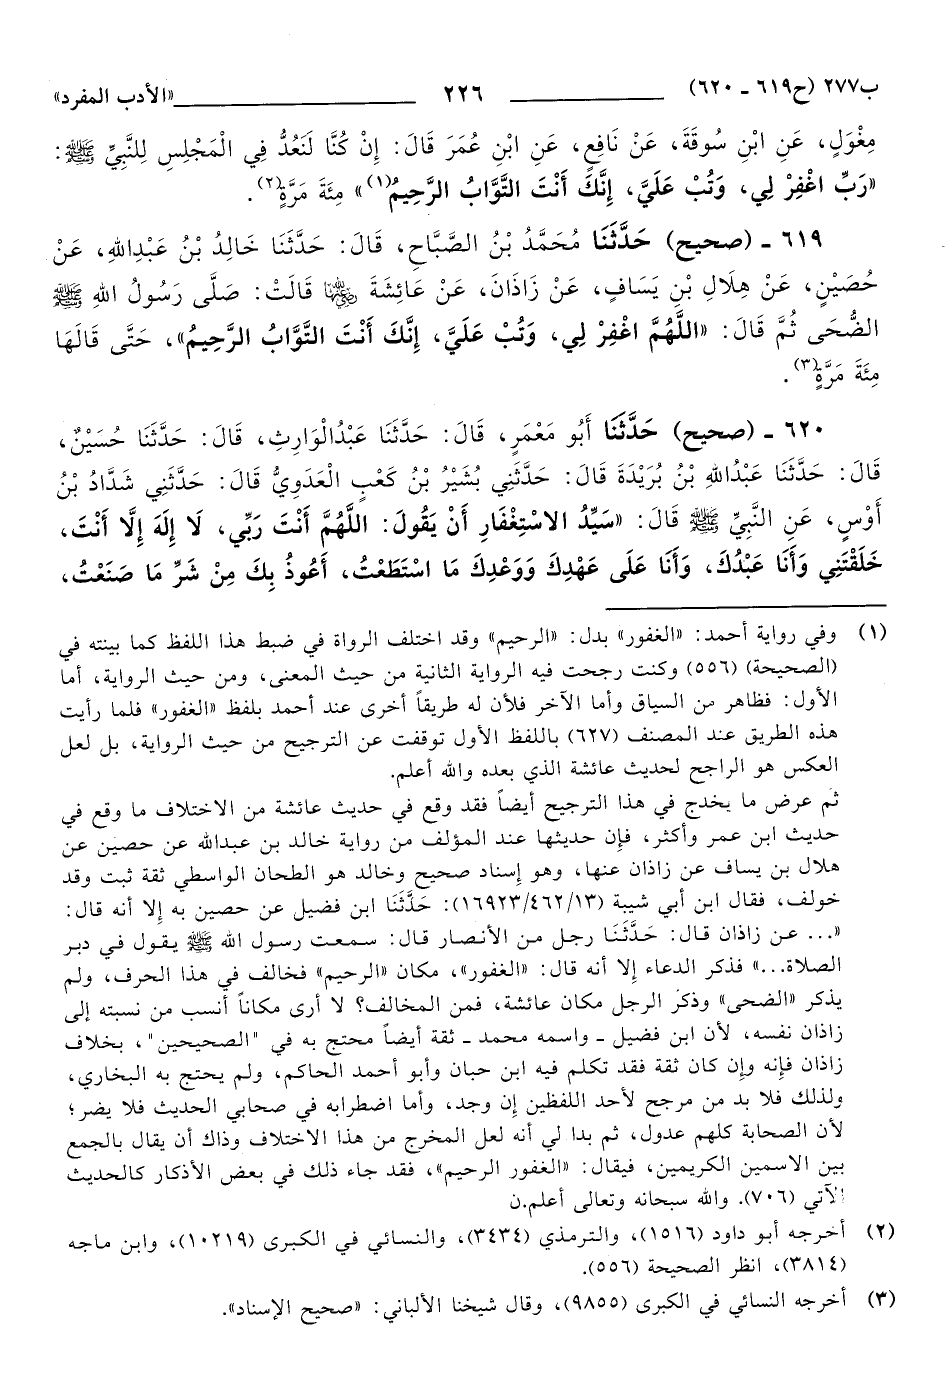 ب٢٧٧ (ح٦١٩ - ٦٢٠) ٢٢٦ «الأدب المفرد»
مِغْوَلٍ، عَنِ ابْنِ سُوقَةَ، عَنْ نَافِعٍ، عَنِ ابْنِ عُمَرَ قَالَ: إِنْ كُنَّا لَنَعُدُّ فِي الْمَجْلِسِ لِلنَّبِيِّ ﷺ:
«رَبِّ اغْفِرْ لِي، وَتُبْ عَلَيَّ، إِنَّكَ أَنْتَ التَّوَّابُ الرَّحِيمُ(١)» مِئَةَ مَرَّةٍ(٢).
٦١٩ - (صحيح) حَدَّثَنَا مُحَمَّدُ بْنُ الصَّبَّاحِ، قَالَ: حَدَّثَنَا خَالِدُ بْنُ عَبْدِاللهِ، عَنْ
حُصَيْنٍ، عَنْ هِلَالِ بْنِ يَسَافٍ، عَنْ زَاذَانَ، عَنْ عَائِشَةَ رضي الله عنها قَالَتْ: صَلَّى رَسُولُ اللهِ ﷺ
الضُّحَى ثُمَّ قَالَ: «اللَّهُمَّ اغْفِرْ لِي، وَتُبْ عَلَيَّ، إِنَّكَ أَنْتَ التَّوَّابُ الرَّحِيمُ»، حَتَّى قَالَهَا
مِئَةَ مَرَّةٍ(٣).
٦٢٠ - (صحيح) حَدَّثَنَا أَبُو مَعْمَرٍ، قَالَ: حَدَّثَنَا عَبْدُالْوَارِثِ، قَالَ: حَدَّثَنَا حُسَيْنٌ،
قَالَ: حَدَّثَنَا عَبْدُاللهِ بْنُ بُرَيْدَةَ قَالَ: حَدَّثَنِي بُشَيْرُ بْنُ كَعْبٍ الْعَدَوِيُّ قَالَ: حَدَّثَنِي شَدَّادُ بْنُ
أَوْسٍ، عَنِ النَّبِيِّ ﷺ قَالَ: «سَيِّدُ الاسْتِغْفَارِ أَنْ يَقُولَ: اللَّهُمَّ أَنْتَ رَبِّي، لَا إِلَهَ إِلَّا أَنْتَ،
خَلَقْتَنِي وَأَنَا عَبْدُكَ، وَأَنَا عَلَى عَهْدِكَ وَوَعْدِكَ مَا اسْتَطَعْتُ، أَعُوذُ بِكَ مِنْ شَرِّ مَا صَنَعْتُ،
(١) وفي رواية أحمد: «الغفور» بدل: «الرحيم» وقد اختلف الرواة في ضبط هذا اللفظ كما بينته في
(الصحيحة) (٥٥٦) وكنت رجحت فيه الرواية الثانية من حيث المعنى، ومن حيث الرواية، أما
الأول: فظاهر من السياق وأما الآخر فلأن له طريقاً أخرى عند أحمد بلفظ «الغفور» فلما رأيت
هذه الطريق عند المصنف (٦٢٧) باللفظ الأول توقفت عن الترجيح من حيث الرواية، بل لعل
العكس هو الراجح لحديث عائشة الذي بعده والله أعلم.
ثم عرض ما يخدج في هذا الترجيح أيضاً فقد وقع في حديث عائشة من الاختلاف ما وقع في
حديث ابن عمر وأكثر، فإن حديثها عند المؤلف من رواية خالد بن عبدالله عن حصين عن
هلال بن يساف عن زاذان عنها، وهو إسناد صحيح وخالد هو الطحان الواسطي ثقة ثبت وقد
خولف، فقال ابن أبي شيبة (١٦٩٢٣/٤٦٢/١٣): حَدَّثَنَا ابن فضيل عن حصين به إلا أنه قال:
«... عن زاذان قال: حَدَّثَنَا رجل من الأنصار قال: سمعت رسول الله ﷺ يقول في دبر
الصلاة...» فذكر الدعاء إلا أنه قال: «الغفور»، مكان «الرحيم» فخالف في هذا الحرف، ولم
يذكر «الضحى» وذكر الرجل مكان عائشة، فمن المخالف؟ لا أرى مكاناً أنسب من نسبته إلى
زاذان نفسه، لأن ابن فضيل - واسمه محمد - ثقة أيضاً محتج به في "الصحيحين"، بخلاف
زاذان فإنه وإن كان ثقة فقد تكلم فيه ابن حبان وأبو أحمد الحاكم، ولم يحتج به البخاري،
ولذلك فلا بد من مرجح لأحد اللفظين إن وجد، وأما اضطرابه في صحابي الحديث فلا يضر؛
لأن الصحابة كلهم عدول، ثم بدا لي أنه لعل المخرج من هذا الاختلاف وذاك أن يقال بالجمع
بين الاسمين الكريمين، فيقال: «الغفور الرحيم»، فقد جاء ذلك في بعض الأذكار كالحديث
الآتي (٧٠٦). والله سبحانه وتعالى أعلم.ن
(٢) أخرجه أبو داود (١٥١٦)، والترمذي (٣٤٣٤)، والنسائي في الكبرى (١٠٢١٩)، وابن ماجه
(٣٨١٤)، انظر الصحيحة (٥٥٦).
(٣) أخرجه النسائي في الكبرى (٩٨٥٥)، وقال شيخنا الألباني: «صحيح الإسناد».